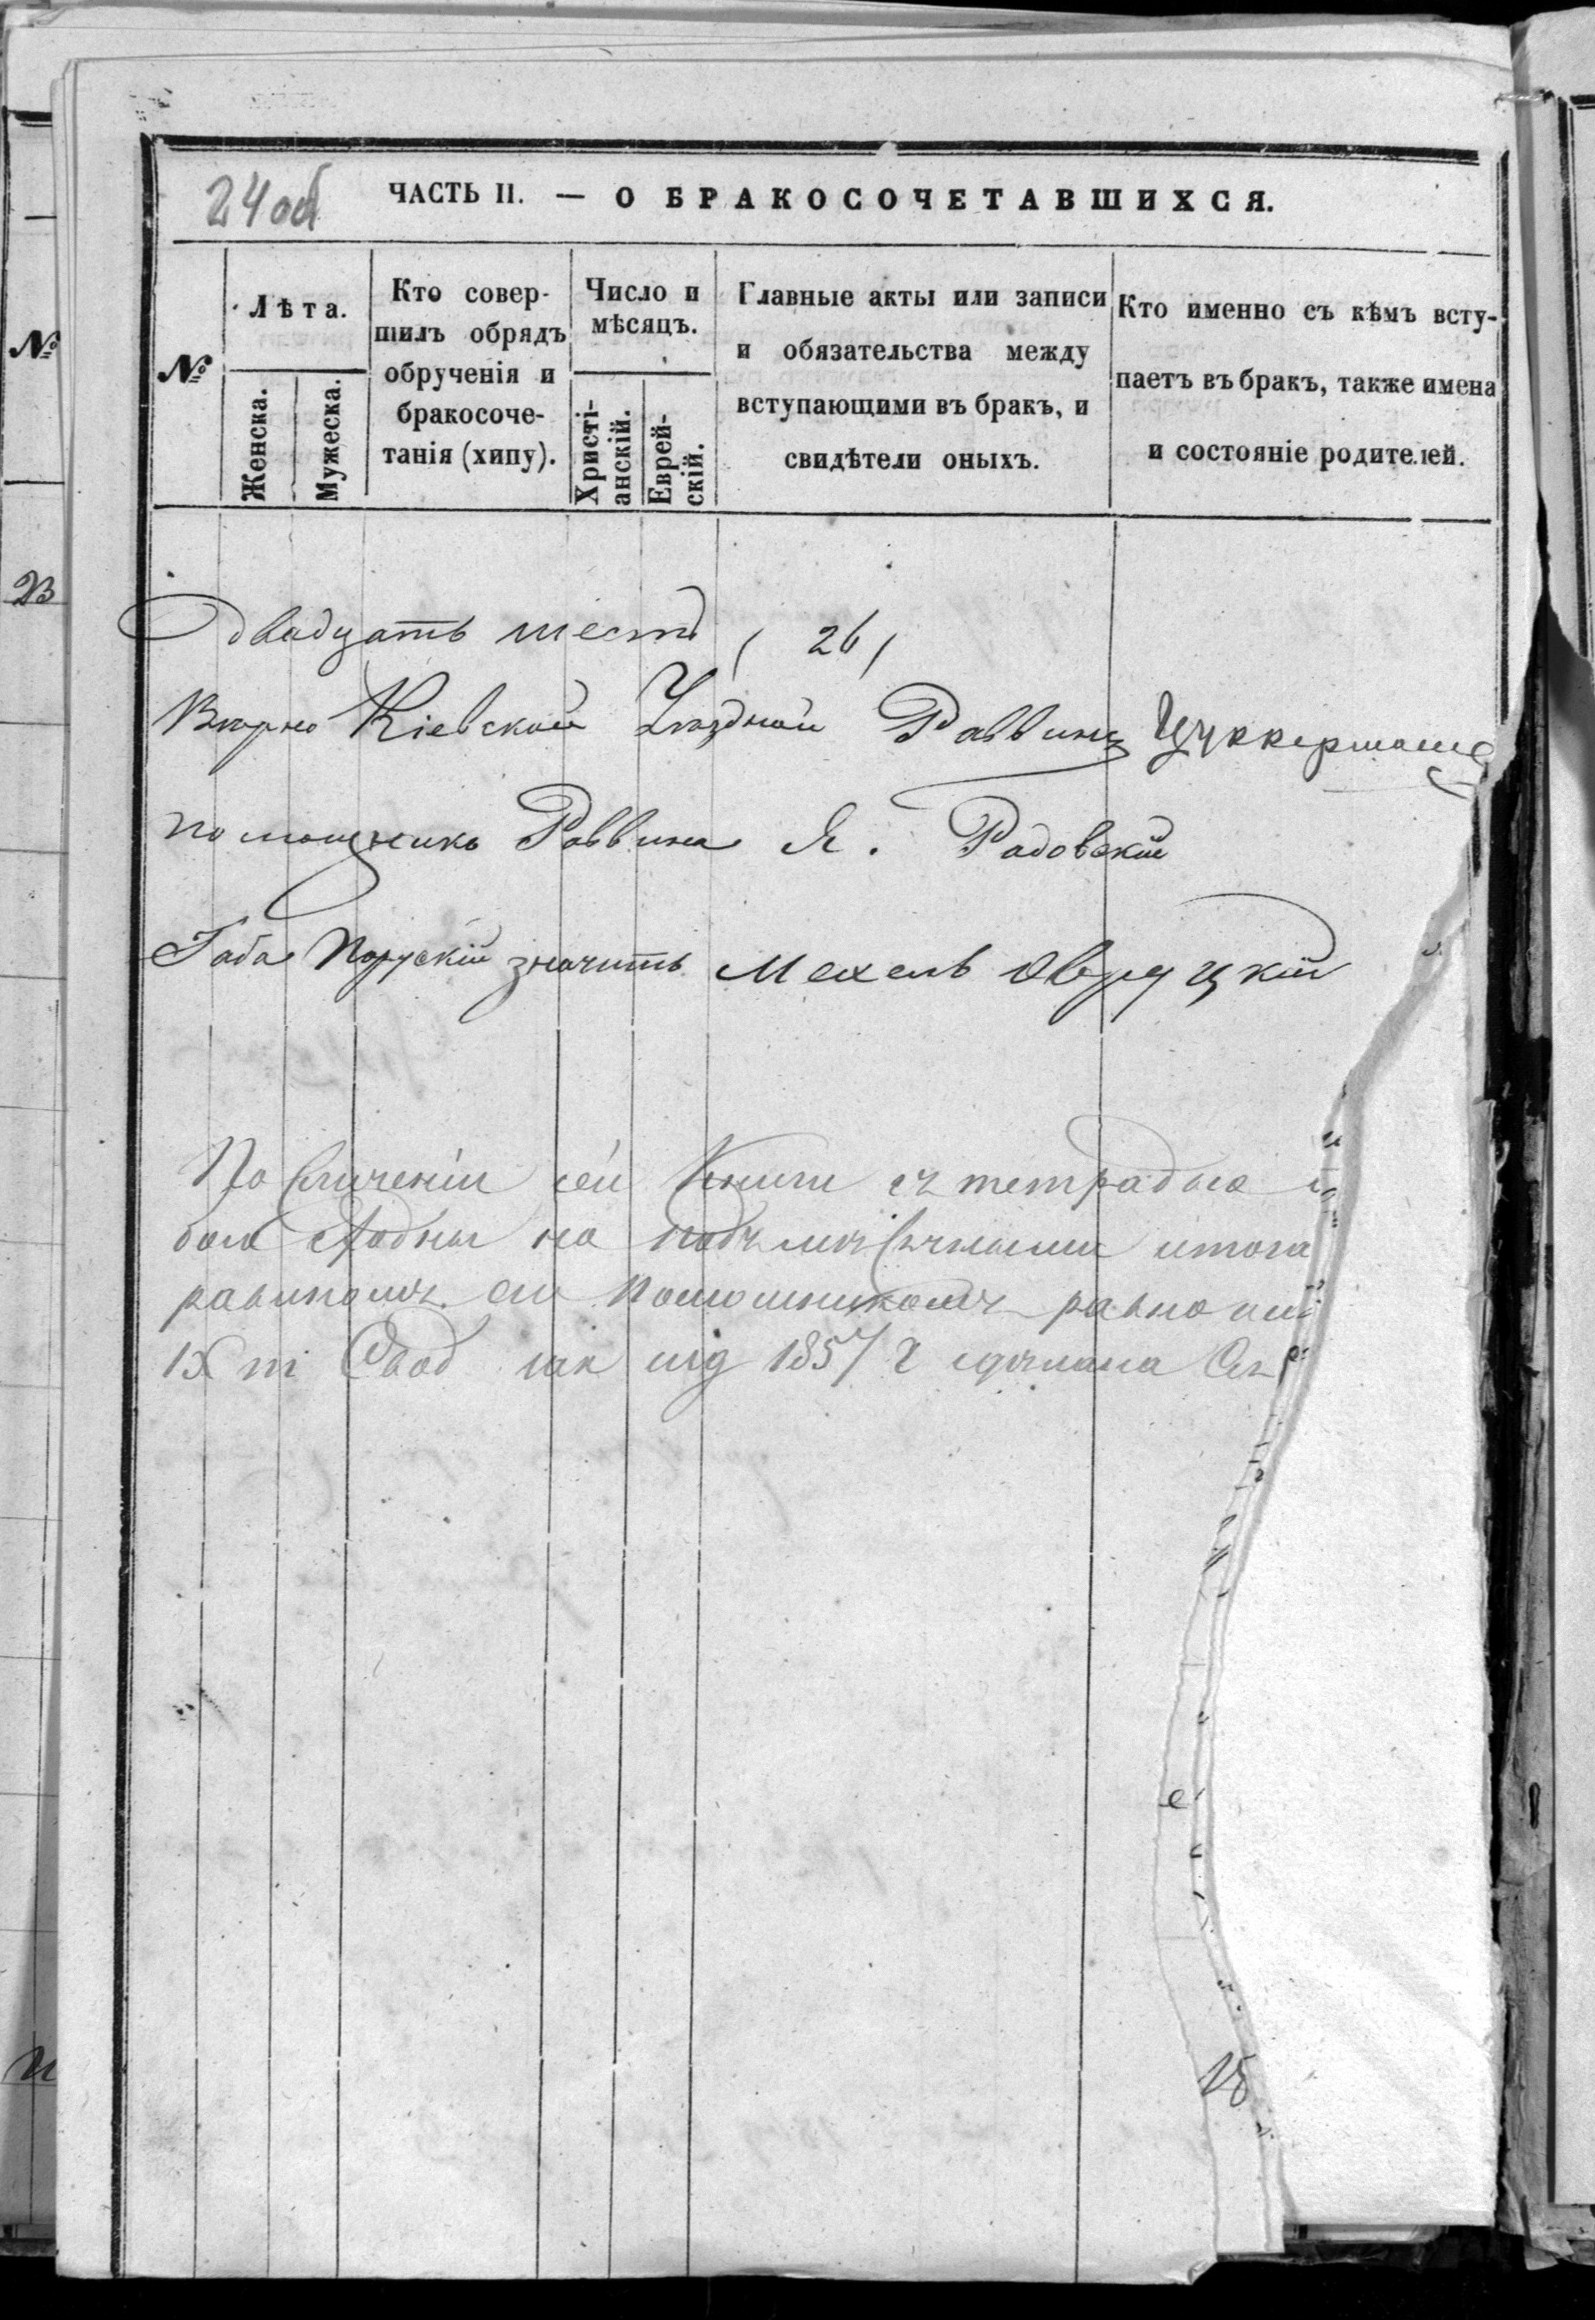 24 об
ЧАСТЬ II. — О БРАКОСОЧЕТАВШИХСЯ.
№
Лѣта.
Женска.
Мужеска.
Кто совер-
шилъ обрядъ
обрученія и
бракосоче-
танія (хипу).
Число и
мѣсяцъ.
Христі-
анскій.
Еврей-
скій.
Главные акты или записи
и обязательства между
вступающими въ бракъ, и
свидѣтели оныхъ.
Кто именно съ кѣмъ всту-
паетъ въ бракъ, также имена
и состояніе родителей.
Двадцать шесть (26)
Вѣрно Кіевской Уѣздной Раввинъ Цуккерманъ
помощникъ Раввина Я. Радовскій
Габа значитъ Мехель Овруцкій
По сличеніи сей Книги съ тетрадью
сходны на итога
равиномъ его Помошникомъ равно
IX т. Свод зак изд 1857 г сдѣлана
№